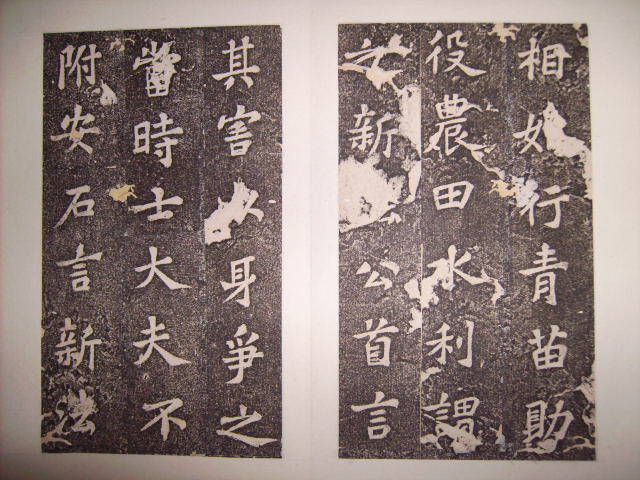 相始行青苗助
役農田水利謂
之新公首言
其害以身爭之
當時士大夫不
附安石言新法